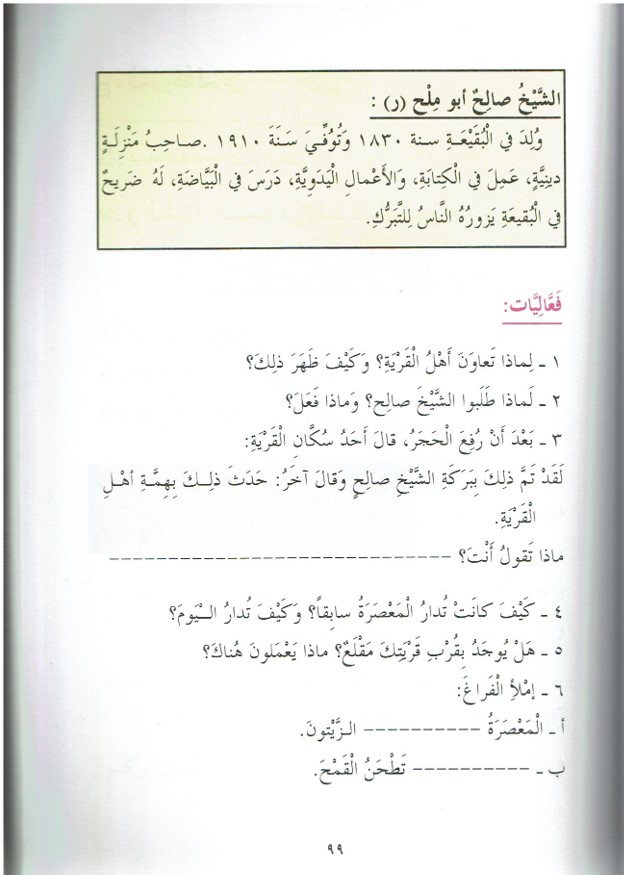 الشَّيْخُ صالِحٌ أبو مِلْح (ر) :
وُلِدَ في الْبُقَيْعَةِ سنة ١٨٣٠ وَتُوُفِّيَ سَنَةَ ١٩١٠ .صاحِبُ مَنْزِلَةٍ
دينِيَّةٍ، عَمِلَ في الْكِتابَةِ، وَالأَعْمالِ الْيَدَوِيَّةِ، دَرَسَ في الْبَيَّاضَةِ، لَهُ ضَريحٌ
في الْبُقيعَةِ يَزورُهُ النَّاسُ لِلتَّبَرُّكِ.
فَعَّالِيَّات:
١ ـ لِماذا تَعاوَنَ أَهْلُ الْقَرْيَةِ؟ وَكَيْفَ ظَهَرَ ذلِكَ؟
٢ ـ لَماذا طَلَبوا الشَّيْخَ صالِح؟ وَماذا فَعَلَ؟
٣ ـ بَعْدَ أَنْ رُفِعَ الْحَجَرُ، قالَ أَحَدُ سُكَّانِ الْقَرْيَةِ:
لَقَدْ تَمَّ ذلِكَ بِبَرَكَةِ الشَّيْخِ صالِحٍ وَقالَ آخَرُ: حَدَثَ ذلِكَ بِهِمَّةِ أهْلِ
الْقَرْيَةِ.
ماذا تَقولُ أَنْتَ؟ ----------------------------
٤ ـ كَيْفَ كانَتْ تُدارُ الْمَعْصَرَةُ سابِقاً؟ وَكَيْفَ تُدارُ الْيَومَ؟
٥ ـ هَلْ يُوجَدُ بِقُرْبِ قَرْيَتِكَ مَقْلَعٌ؟ ماذا يَعْمَلونَ هُناكَ؟
٦ ـ إمْلأِ الْفَراغَ:
أ ـ الْمَعْصَرَةُ ---------- الزَّيْتونَ.
ب ـ ---------- تَطْحَنُ الْقَمْحَ.
٩٩